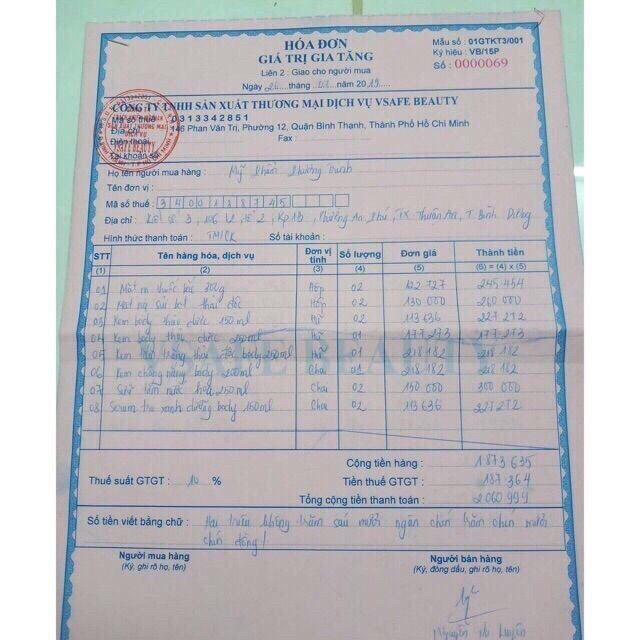 HÓA ĐƠN
GIÁ TRỊ GIA TĂNG
Liên 2 : Giao cho người mua
Ngày 26 tháng 03 năm 2019
Mẫu số : 01GTKT3/001
Ký hiệu : VB/15P
Số : 0000069
CÔNG TY TNHH SẢN XUẤT THƯƠNG MẠI DỊCH VỤ VSAFE BEAUTY
Mã số thuế 0313342851
Địa chỉ 146 Phan Văn Trị, Phường 12, Quận Bình Thạnh, Thành Phố Hồ Chí Minh
Điện thoại Fax :
Tài khoản số
VSAFE BEAUTY
Họ tên người mua hàng : Mỹ Phẩm Phương Oanh
Tên đơn vị :
Mã số thuế: 3400188745
Địa chỉ : 3, 2, Kp1B, Phường An Phú, TX Thuận An, T. Bình Dương
Hình thức thanh toán : TM/CK Số tài khoản :
STT Tên hàng hóa, dịch vụ Đơn vị tính Số lượng Đơn giá Thành tiền
(1) (2) (3) (4) (5) (6) = (4) x (5)
01 Mặt nạ thuốc bắc 300g Hộp 02 122 727 245 454
02 Mặt nạ sủi bọt thải độc Hộp 02 130 000 260 000
03 Kem body thảo dược 150ml Hũ 02 113 636 227 272
04 Kem body thảo dược 250ml Hũ 01 177 273 177 273
05 Kem tắm trắng thải độc body 250ml Hũ 01 218 182 218 182
06 Kem chống nắng body 200ml Chai 01 218 182 218 182
07 Sữa tắm nước hoa 250ml Chai 02 150 000 300 000
08 Serum trà xanh dưỡng body 150ml Chai 02 113 636 227 272
SAFE BEAUTY
Cộng tiền hàng : 1 873 635
Thuế suất GTGT : 10 % Tiền thuế GTGT : 187 364
Tổng cộng tiền thanh toán : 2 060 999
Số tiền viết bằng chữ : Hai triệu không trăm sáu mươi ngàn chín trăm chín mươi
chín đồng !
Người mua hàng
(Ký, ghi rõ họ, tên)
Người bán hàng
(Ký, đóng dấu, ghi rõ họ, tên)
Nguyễn